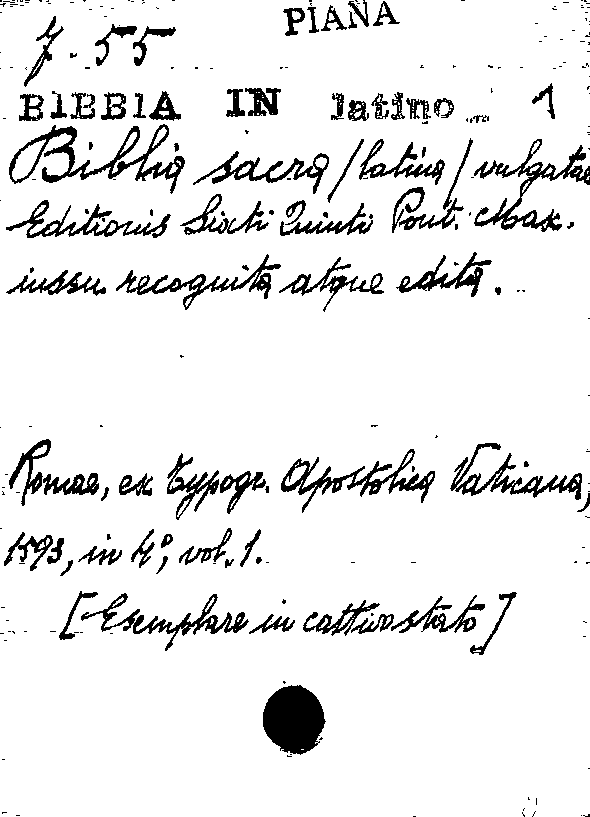 PIANA
7. 55
BIBBIA IN latino 1
Biblia sacra /latina/ vulgatae
Editionis Sixti Quinti Pont. Max.
iussu recognita atque edita.
Romae, ex Typogr. Apostolica Vaticana,
1593, in 4°, vol. 1.
[Esemplare in cattivo stato]